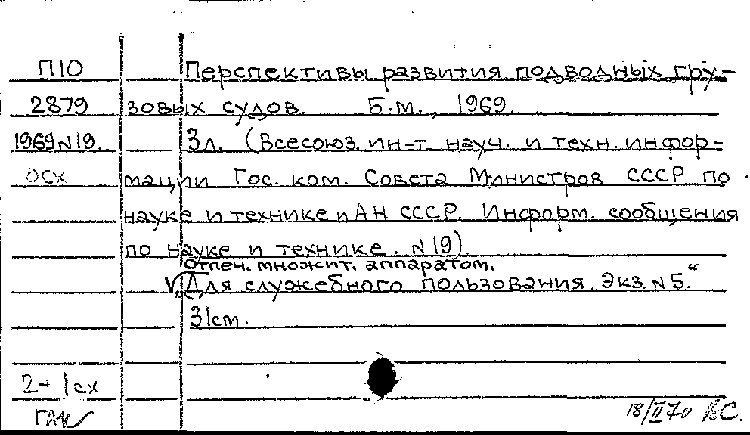 П10
2879
1969 N 19.
осх
Перспективы развития подводных гру-
зовых судов. Б.м., 1969.
3л. (Всесоюз. ин-т науч. и техн. инфор-
мации Гос. ком. Совета Министров СССР по
науке и технике и АН СССР. Информ. сообщения
по науке и технике. N 19).
Отпеч. множит. аппаратом.
"Для служебного пользования. Экз. N 5."
31см.
2- 1сх
18/II 70 ВС.